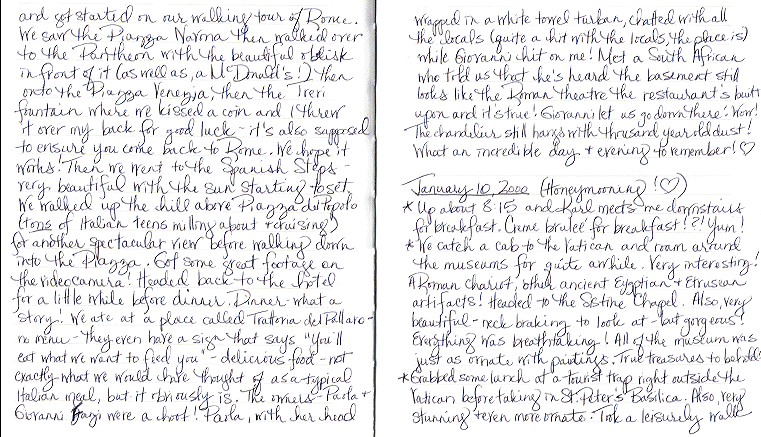 and got started on our walking tour of Rome.
We saw the Piazza Navma then walked over
to the Pantheon with the beautiful oblisk
in front of it (as well as, a McDonald's!) then
onto the Piazza Venezia, then the Trevi
fountain where we kissed a coin and I threw
it over my back for good luck - it's also supposed
to ensure you come back to Rome. We hope it
works! Then we went to the Spanish Steps -
very beautiful with the sun starting to set.
We walked up the hill above Piazza del Popolo
(tons of Italian teens milling about & cruising)
for another spectacular view before walking down
into the Piazza. Got some great footage on
the videocamera! Headed back to the hotel
for a little while before dinner. Dinner - what a
story! We ate at a place called Trattoria del Pallaro -
no menu - they even have a sign that says "You'll
eat what we want to feed you" - delicious food - not
exactly what we would have thought of as a typical
Italian meal, but it obviously is. The owners - Paola &
Giovanni Fazi were a hoot! Paola, with her head
wrapped in a white towel turban, chatted with all
the locals (quite a hit with the locals, the place is)
while Giovanni hit on me! Met a South African
who told us that he's heard the basement still
looks like the Roman theatre the restaurant's built
upon and it's true! Giovanni let us go down there! Wow!
The chandelier still hangs with thousand year old dust!
What an incredible day & evening to remember! ♡
January 10, 2000 (Honeymooning! ♡)
* Up about 8:15 and Karl meets me downstairs
for breakfast. Creme brulee for breakfast!?! Yum!
* We catch a cab to the Vatican and roam around
the museums for quite awhile. Very interesting!
A Roman Chariot, other ancient Egyptian & Etruscan
artifacts! Headed to the Sistine Chapel. Also, very
beautiful - neck braking to look at - but gorgeous!
Everything was breathtaking! All of the museum was
just as ornate with paintings. True treasures to behold!
* Grabbed some lunch at a tourist trap right outside the
Vatican before taking in St. Peter's Basilica. Also, very
stunning & even more ornate. Took a leisurely walk